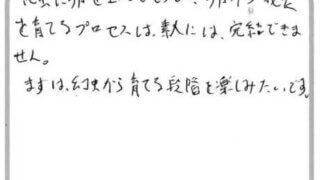 を育てるプロセスは、素人には、完結できま
せん。
まずは、幼虫から育てる段階を楽しみたいです。